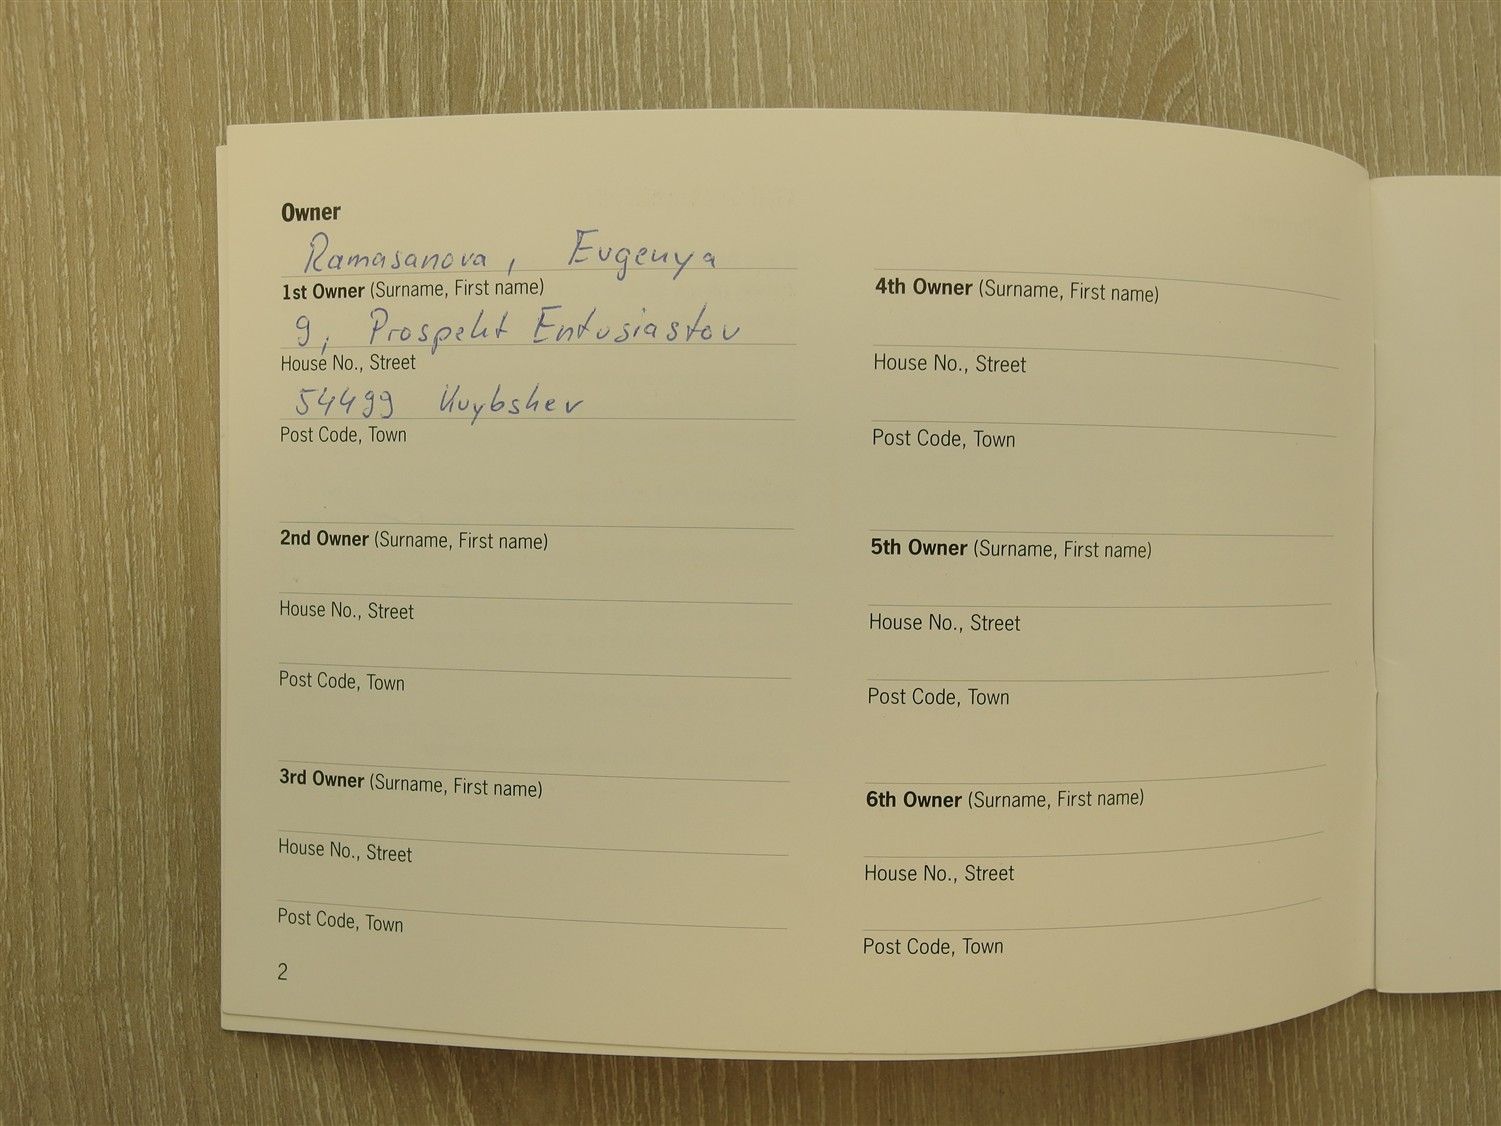 Owner
Ramasanova, Evgenya
1st Owner (Surname, First name)
9, Prospekt Entusiastov
House No., Street
54499 Kuybshev
Post Code, Town
2nd Owner (Surname, First name)
House No., Street
Post Code, Town
3rd Owner (Surname, First name)
House No., Street
Post Code, Town
2
4th Owner (Surname, First name)
House No., Street
Post Code, Town
5th Owner (Surname, First name)
House No., Street
Post Code, Town
6th Owner (Surname, First name)
House No., Street
Post Code, Town